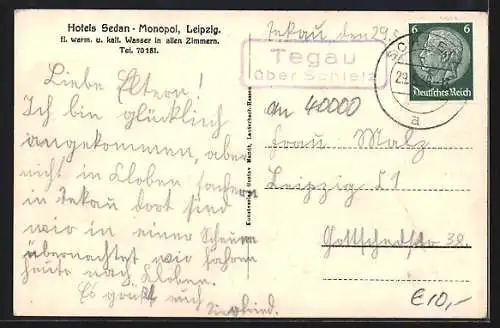 Hotels Sedan - Monopol, Leipzig.
fl. warm. u. kalt. Wasser in allen Zimmern.
Tel. 70181.
Tekau, den 29.
Tegau
über Schleiz
SCHLEIZ
29.
a
6 6
Deutsches Reich
Liebe Eltern!
Ich bin glücklich
angekommen, aber
nicht in Kloben sondern
in Tekau dort sind
wir in einer Scheune
übernachtet wir fahren
heute nach Kloben.
Es grüßt euch
Siegfried.
An 40000
Frau Malz
Leipzig C1
Gottschedstr 38.
Kunstverlag Gustav Mandt, Lauterbach-Hessen
€10,-